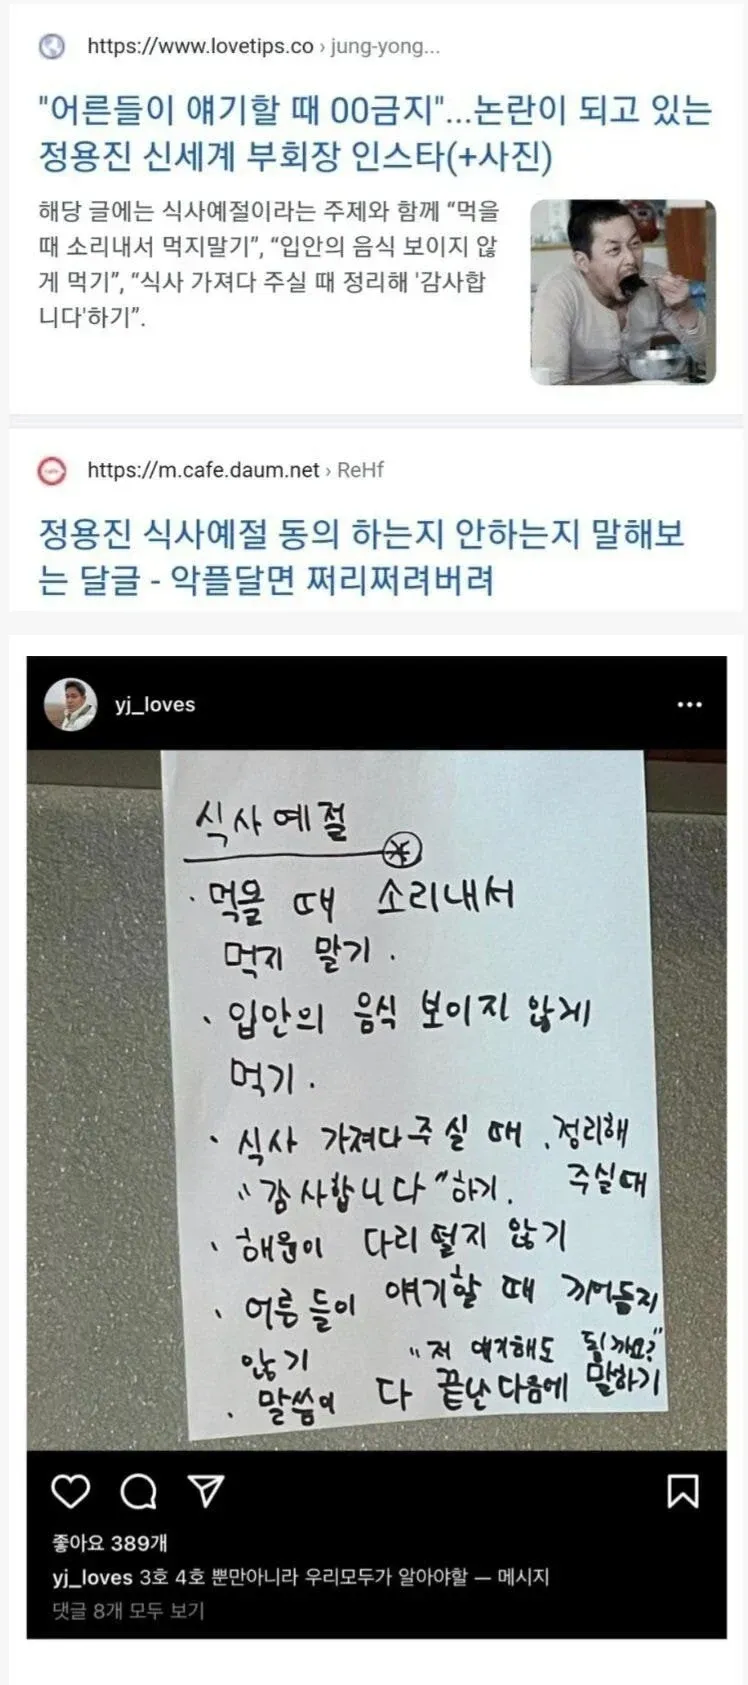 https://www.lovetips.co › jung-yong...
"어른들이 얘기할 때 00금지"...논란이 되고 있는
정용진 신세계 부회장 인스타(+사진)
해당 글에는 식사예절이라는 주제와 함께 “먹을
때 소리내서 먹지말기”, “입안의 음식 보이지 않
게 먹기”, “식사 가져다 주실 때 정리해 '감사합
니다'하기”.
https://m.cafe.daum.net › ReHf
정용진 식사예절 동의 하는지 안하는지 말해보
는 달글 - 악플달면 쩌리쩌려버려
yj_loves
식사예절
· 먹을 때 소리내서
먹지 말기.
· 입안의 음식 보이지 않게
먹기.
· 식사 가져다주실 때, 정리해
주실때
"감사합니다"하기.
· 해윤이 다리 떨지 않기
· 어른들이 얘기할 때 끼어들지
않기 "저 얘기해도 될까요?"
· 말씀이 다 끝난다음에 말하기
좋아요 389개
yj_loves 3호 4호 뿐만아니라 우리모두가 알아야할 — 메시지
댓글 8개 모두 보기